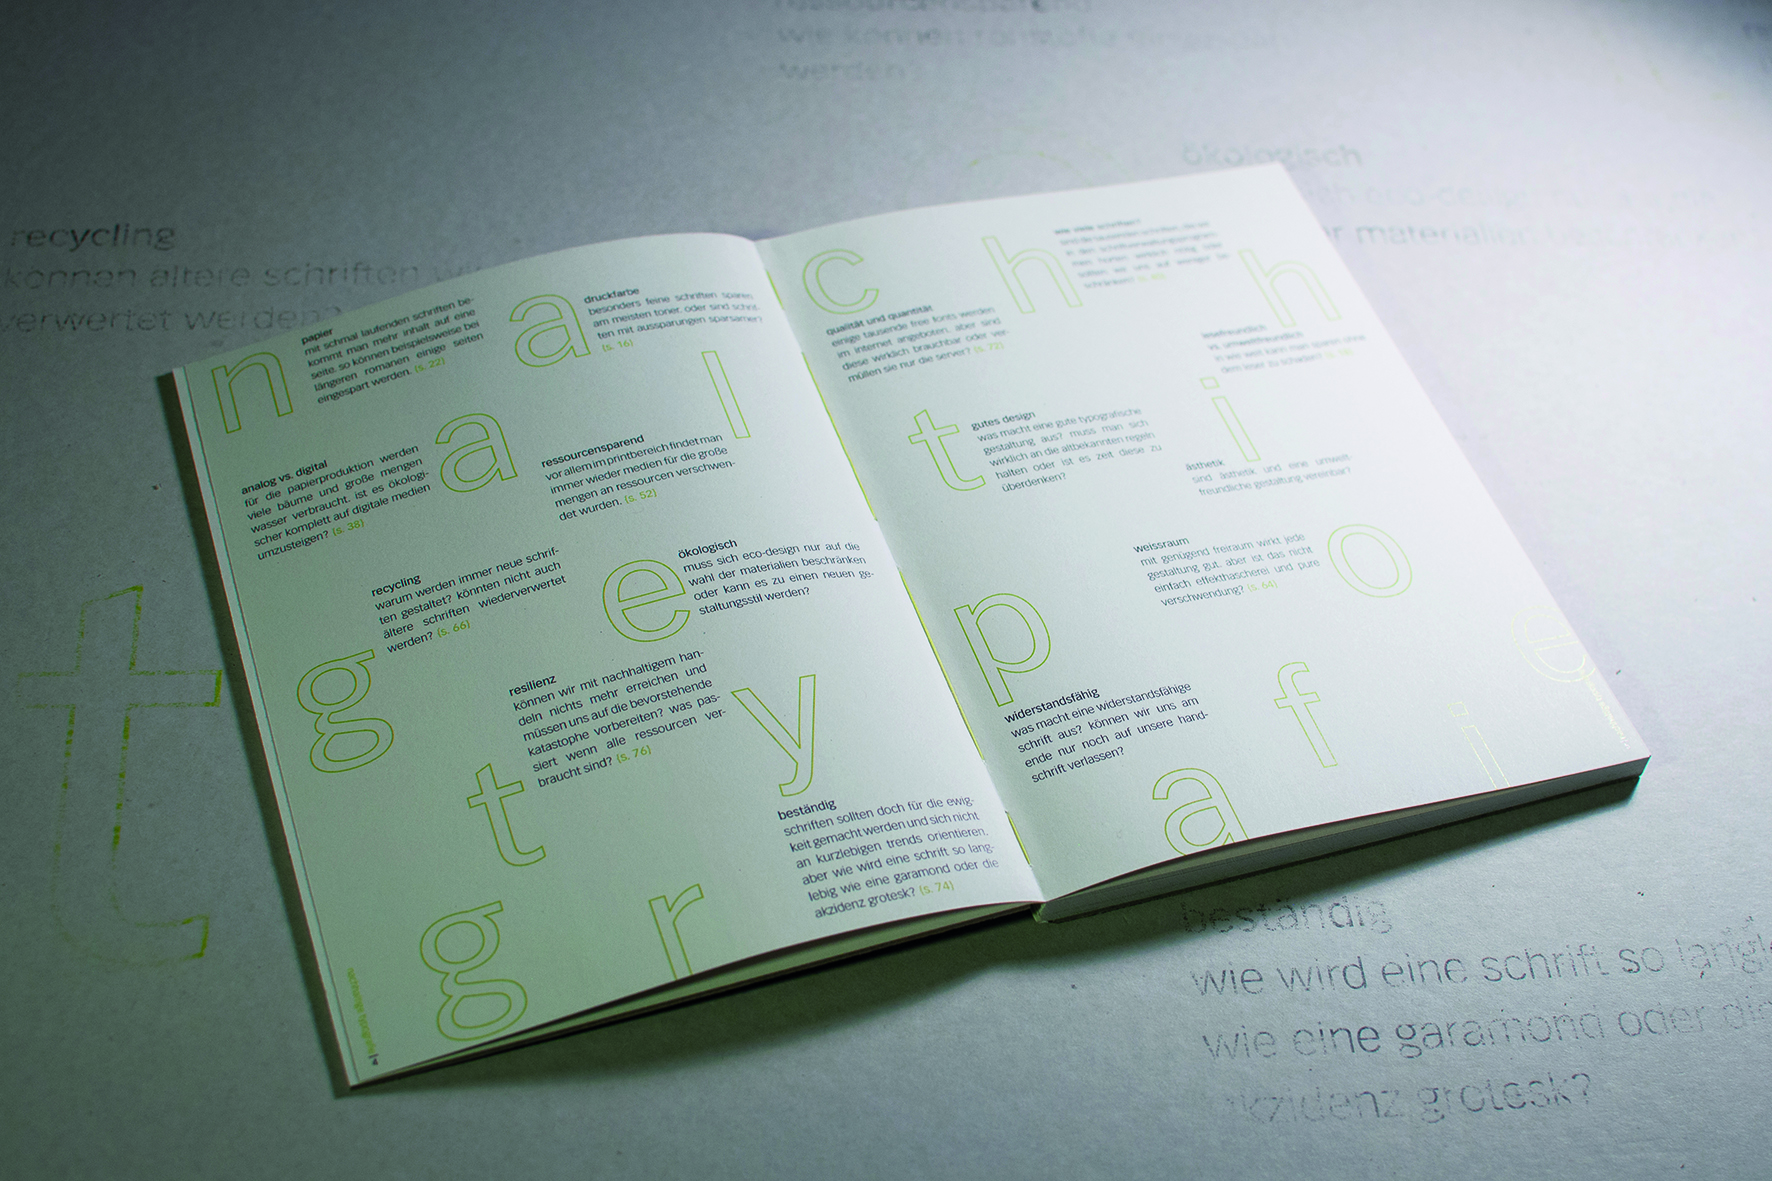 recycling
können ältere schriften
verwertet werden?
wie können rohstoffe
werden?
ökologisch
eco-design
materialien
n
papier
mit schmal laufenden schriften be-
kommt man mehr inhalt auf eine
seite, so können beispielsweise bei
längeren romanen einige seiten
eingespart werden. (s. 22)
a
druckfarbe
besonders feine schriften sparen
am meisten toner, oder sind schrif-
ten mit aussparungen sparsamer?
(s. 16)
l
analog vs. digital
für die papierproduktion werden
viele bäume und große mengen
wasser verbraucht. ist es ökologi-
scher komplett auf digitale medien
umzusteigen? (s. 38)
a
ressourcensparend
vor allem im printbereich findet man
immer wieder medien für die große
mengen an ressourcen verschwen-
det wurden. (s. 52)
recycling
warum werden immer neue schrif-
ten gestaltet? könnten nicht auch
ältere schriften wiederverwertet
werden? (s. 66)
e
ökologisch
muss sich eco-design nur auf die
wahl der materialien beschränken
oder kann es zu einen neuen ge-
staltungsstil werden?
g
resilienz
können wir mit nachhaltigem han-
deln nichts mehr erreichen und
müssen uns auf die bevorstehende
katastophe vorbereiten? was pas-
siert wenn alle ressourcen ver-
braucht sind? (s. 76)
y
t
beständig
schriften sollten doch für die ewig-
keit gemacht werden und sich nicht
an kurzlebigen trends orientieren,
aber wie wird eine schrift so lang-
lebig wie eine garamond oder die
akzidenz grotesk? (s. 74)
g
r
4
c
h
wie viele schriften?
h
qualität und quantität
einige tausende free fonts werden
im internet angeboten, aber sind
diese wirklich brauchbar oder ver-
müllen sie nur die server? (s. 72)
lesefreundlich
vs. umweltfreundlich
in wie weit kann man sparen ohne
dem leser zu schaden?
t
gutes design
was macht eine gute typografische
gestaltung aus? muss man sich
wirklich an die altbekannten regeln
halten oder ist es zeit diese zu
überdenken?
i
ästhetik
sind ästhesk und eine umwelt-
freundliche gestaltung vereinbar?
weissraum
mit genügend freiraum wirkt jede
gestaltung gut, aber ist das nicht
einfach effekthascherei und pure
verschwendung? (s. 64)
o
p
widerstandsfähig
was macht eine widerstandsfähige
schrift aus? können wir uns am
ende nur noch auf unsere hand-
schrift verlassen?
f
i
e
a
t
beständig
wie wird eine schrift so
wie eine garamond oder
akzidenz grotesk?